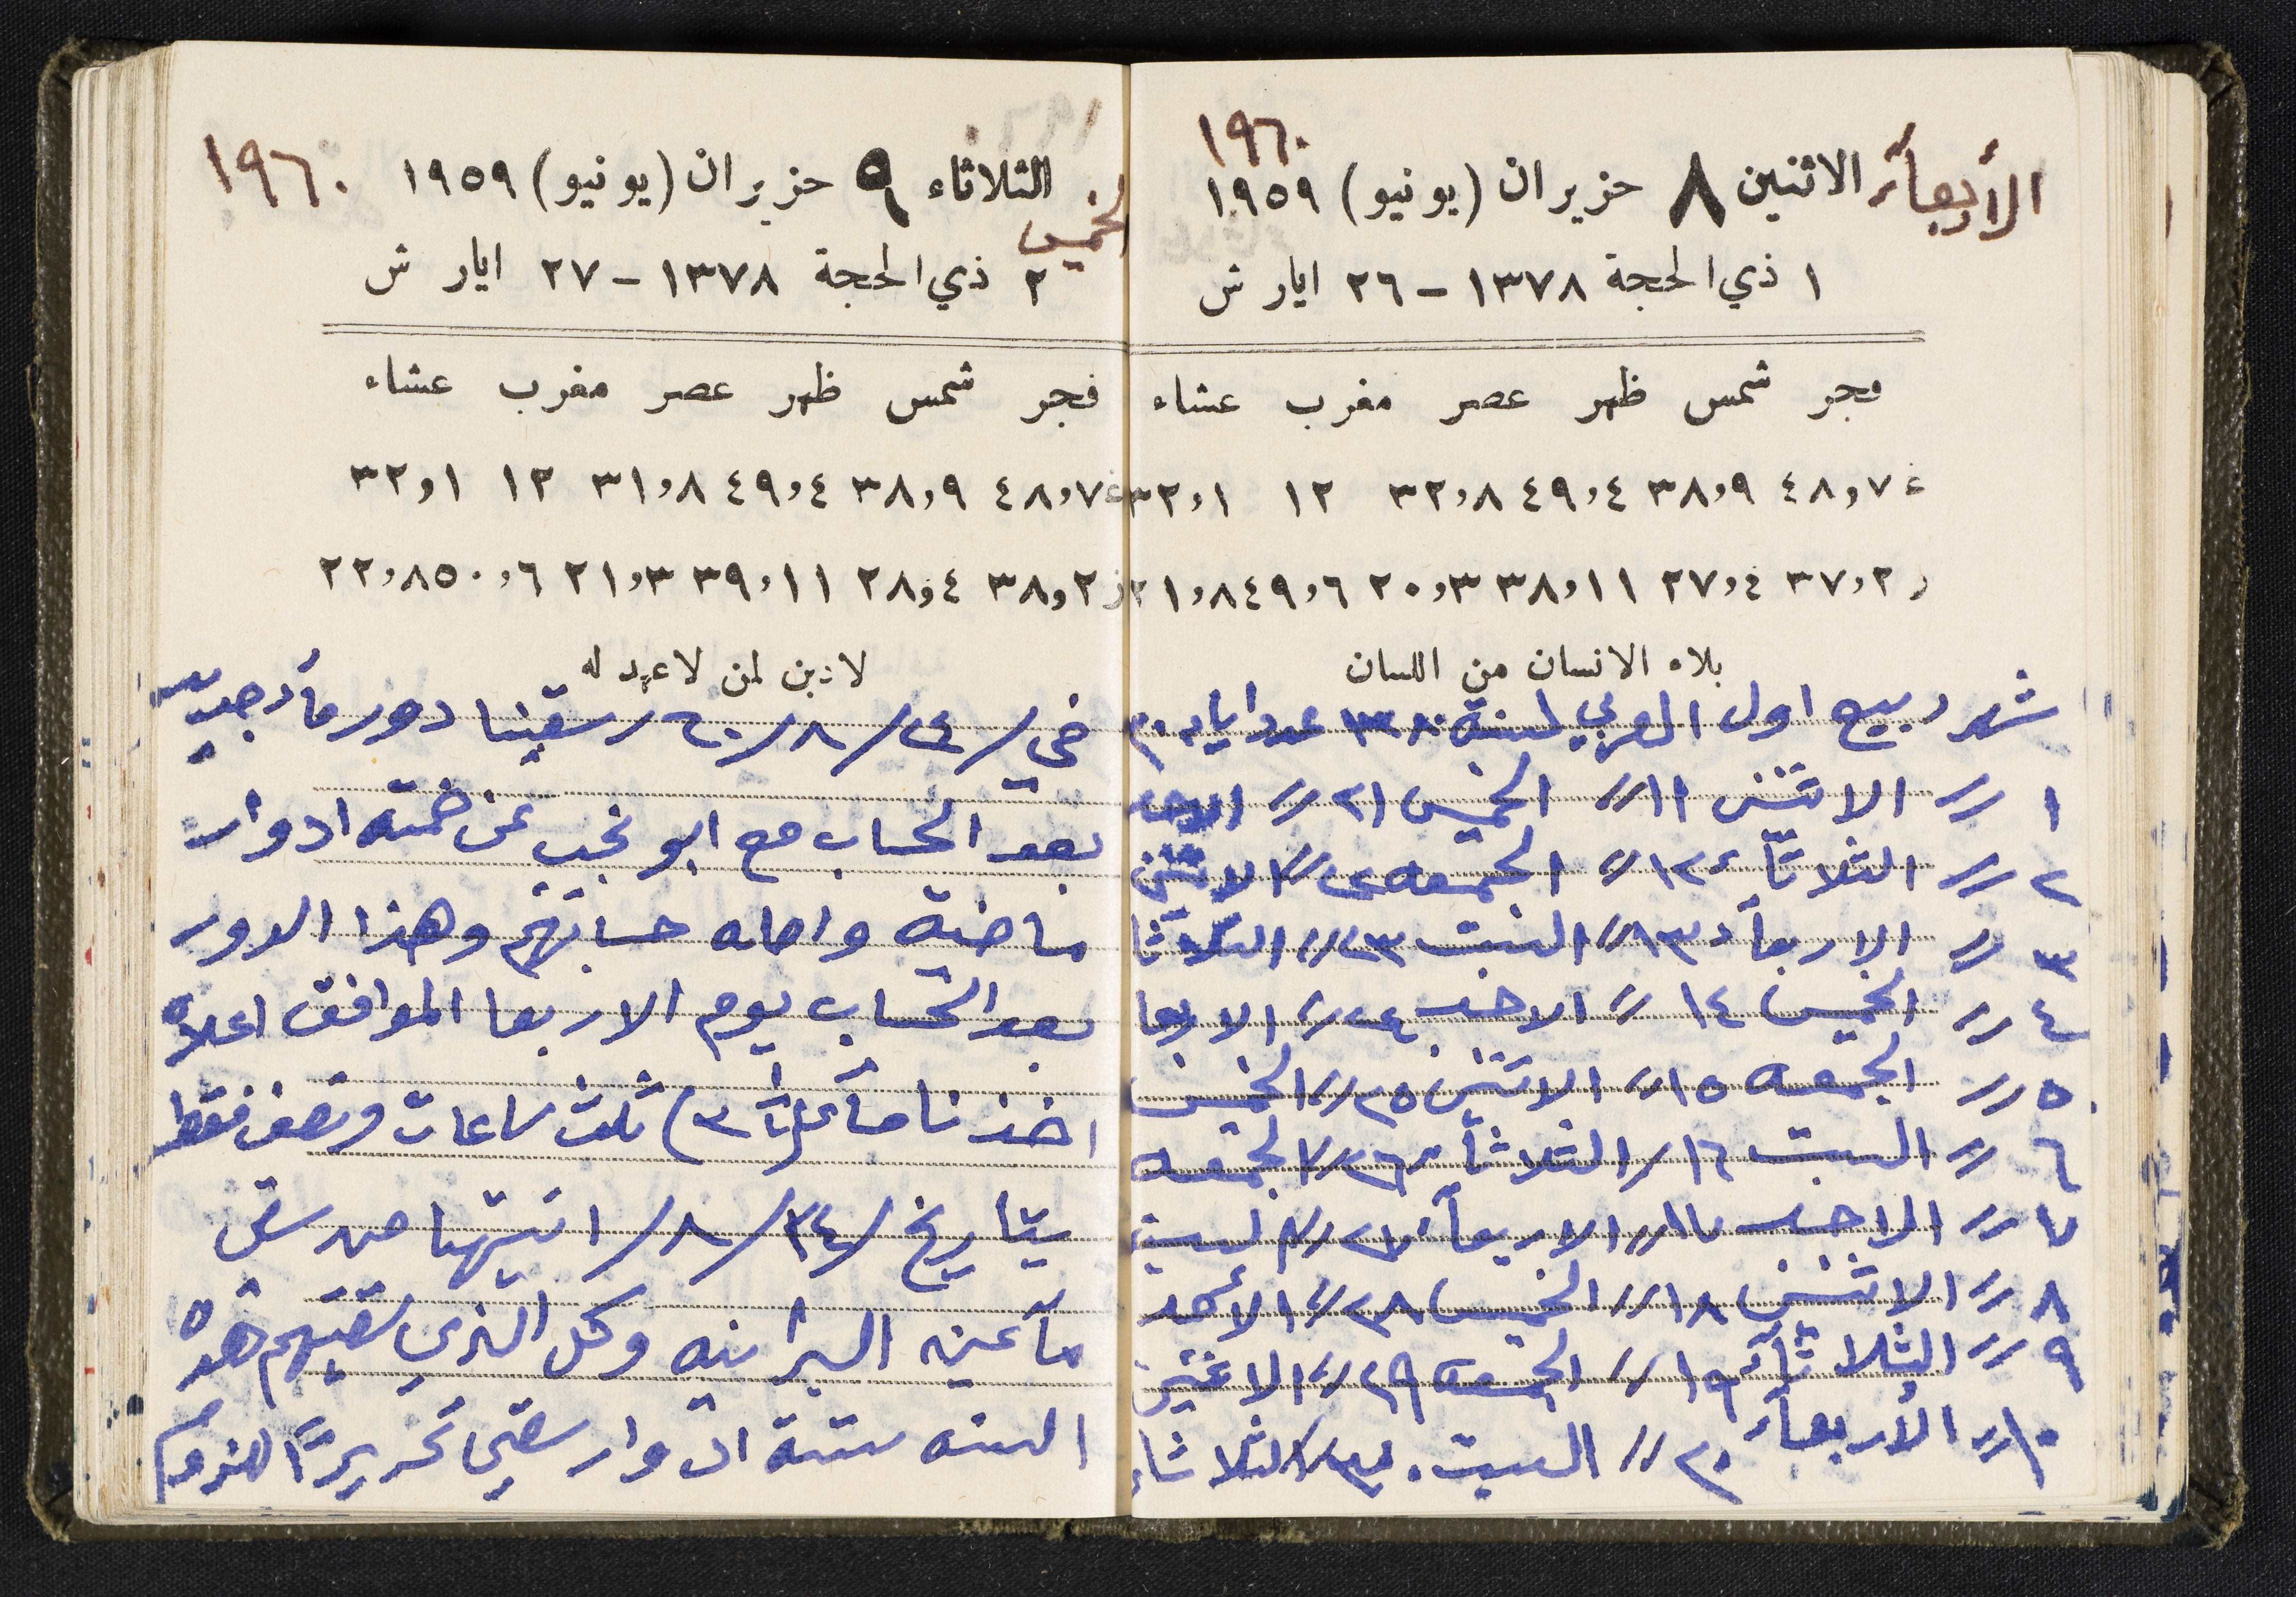 ١٩٦٠
الأربعآء الاثنين ٨ حزيران (يونيو) ١٩٥٩
١ ذي الحجة ١٣٧٨ - ٢٦ ايار ش
فجر شمس ظهر عصر مغرب عشاء
غ ٤٨,٧ ٣٨,٩ ٤٩,٤ ٣٢,٨ ١٢ ٣٢,١
ز ٣٧,٢ ٢٧,٤ ٣٨,١١ ٢٠,٣ ٤٩,٦ ٢١,٨
بلاء الانسان من اللسان
شهر ربيع اول العربي لسنة ١٣٨٠ عدد ايام ٣٠
١ // الاثنين ١١ // الخميس ٢١ // الاحد
٢ // الثلاثآء ١٢ // الجمعه ٢٢ // الاثنين
٣ // الاربعآء ١٣ // السبت ٢٣ // الثلاثا
٤ // الخميس ١٤ // الاحد ٢٤ // الاربعا
٥ // الجمعه ١٥ // الاثنين ٢٥ // الخميس
٦ // السبت ١٦ // الثلاثآء ٢٦ // الجمعه
٧ // الاحد ١٧ // الاربعآء ٢٧ // السبت
٨ // الاثنين ١٨ // الخميس ٢٨ // الاحد
٩ // الثلاثآء ١٩ // الجمعه ٢٩ // الاثنين
١٠ // الأربعآء ٢٠ // السبت ٣٠ // الثلاثاء
الثلاثاء ٩ حزيران (يونيو) ١٩٥٩ ١٩٦٠
الخميس
٢ ذي الحجة ١٣٧٨ - ٢٧ ايار ش
فجر شمس ظهر عصر مغرب عشاء
غ ٤٨,٧ ٣٨,٩ ٤٩,٤ ٣١,٨ ١٢ ٣٢,١
ز ٣٨,٢ ٢٨,٤ ٣٩,١١ ٢١,٣ ٥٠,٦ ٢٢,٨
لا دين لمن لا عهد له
في /٢٤/٨/٦٠/ سقينا دور مآء جديد
بعد الحساب مع ابو نجيب عن خمسه ادوار
ماضيه واصله حسابهم وهذا الدور
بعد الحساب يوم الاربعا الموافق اعلاه
اخذنا مآء ثلث ساعات ونصف فقط
بتاريخ /٢٤/٨/ انتهينا من سقي
مآ عين البرانيه وكل الذي سقيتهم هذه
السنه ستة ادوار سقي تحريرًا للزوم